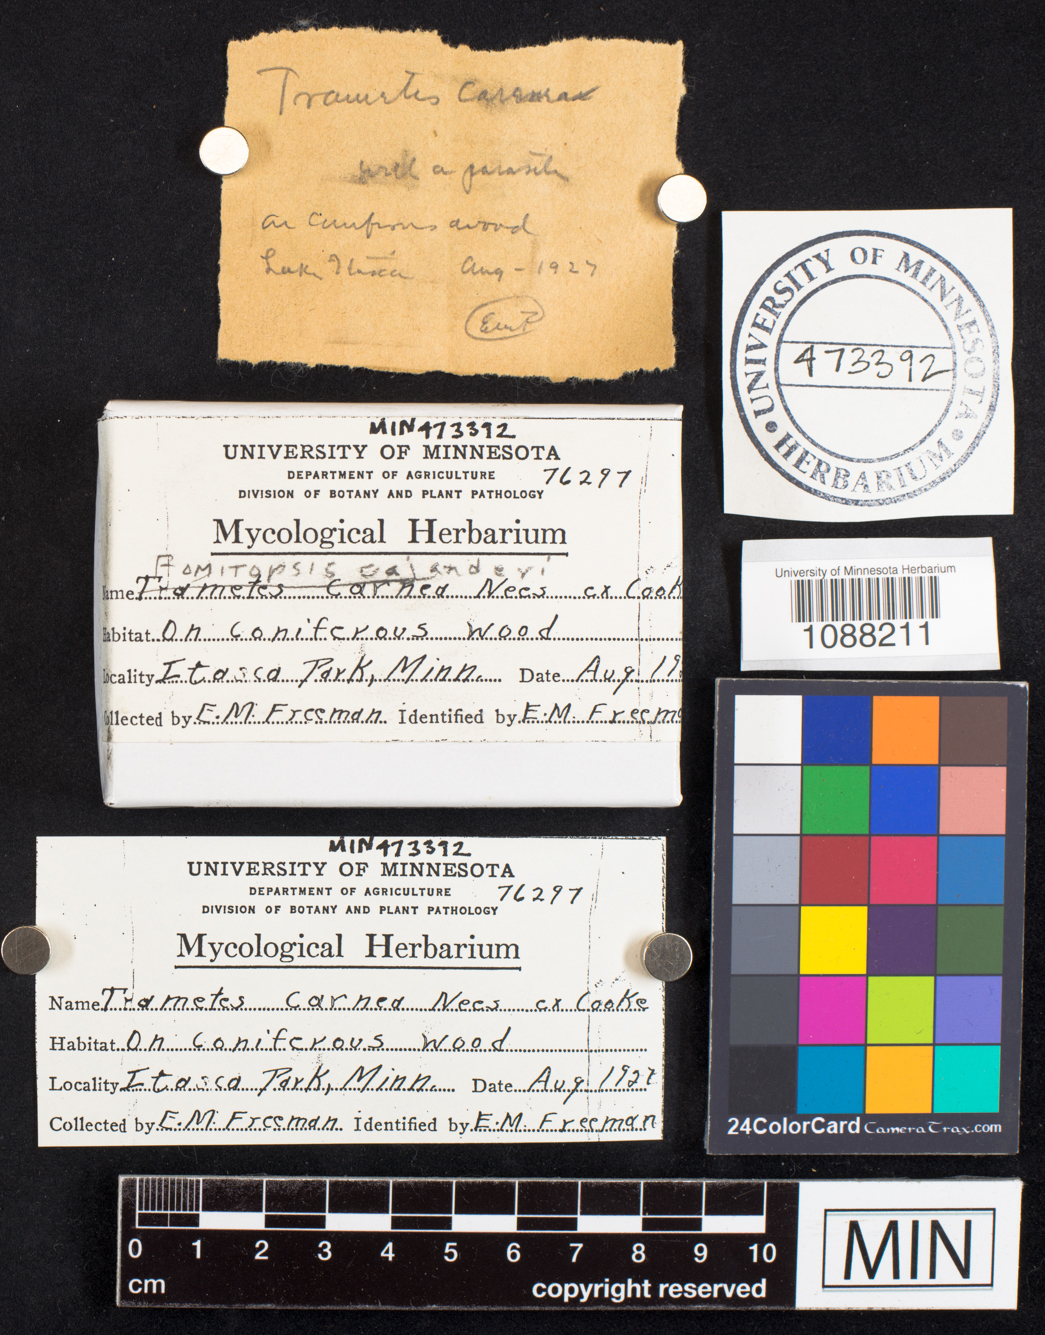 Trametes carnea
with a parasite
on coniferous wood
Lake Itasca Aug - 1927
EMF
UNIVERSITY OF MINNESOTA
473392
• HERBARIUM •
MIN473392
UNIVERSITY OF MINNESOTA
DEPARTMENT OF AGRICULTURE 76297
DIVISION OF BOTANY AND PLANT PATHOLOGY
Mycological Herbarium
FOMITOPSIS cajanderi
ame Trametes carnea Nees ex Cook
abitat On coniferous wood
ocality Itasca Park, Minn. Date Aug 19
ollected by E.M. Freeman Identified by E.M. Freem
University of Minnesota Herbarium
1088211
MIN473392
UNIVERSITY OF MINNESOTA
DEPARTMENT OF AGRICULTURE 76297
DIVISION OF BOTANY AND PLANT PATHOLOGY
Mycological Herbarium
Name Trametes carnea Nees ex Cooke
Habitat On coniferous wood
Locality Itasca Park, Minn. Date Aug 192
Collected by E.M. Freeman Identified by E.M. Freeman
24ColorCard CameraTrax.com
0 1 2 3 4 5 6 7 8 9 10
cm copyright reserved
MIN